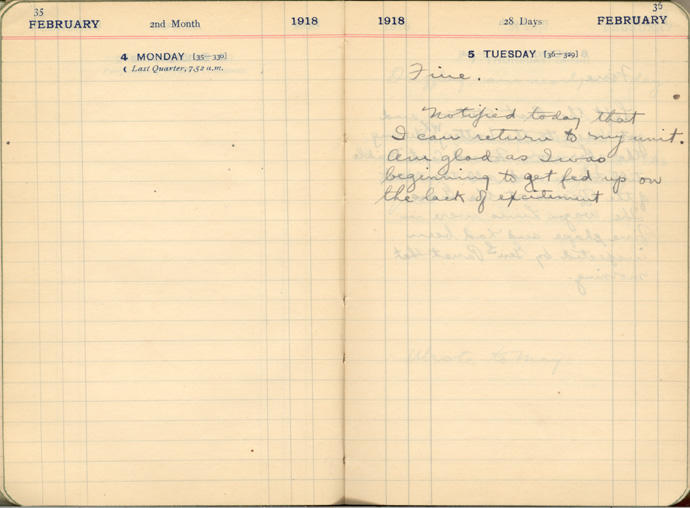 35
FEBRUARY 2nd Month 1918
4 MONDAY [35—330]
☾ Last Quarter, 7.52 a.m.
36
1918 28 Days FEBRUARY
5 TUESDAY [36—329]
Fine.
Notified today that
I can return to my unit.
Am glad as I was
beginning to get fed up on
the lack of excitement